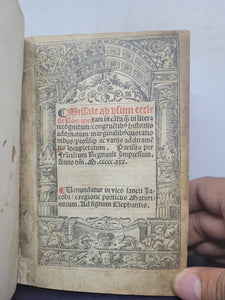 Missale ad vsum eccle
sie Romane: tam in cātu q̄ in litera
recognitum: congruētibꝰ historijs
adornatum: marginalibꝰ quotatio
nibus: prosisq; ac varijs additamē
tis locupletatum. Parisijs per
Franciscum Regnault Impressum.
Anno dñi. M. CCCCC. XXX.
Venundatur in vico sancti Ja
cobi: e regione porticus Maturi
norum. Ad signum Elephantis.